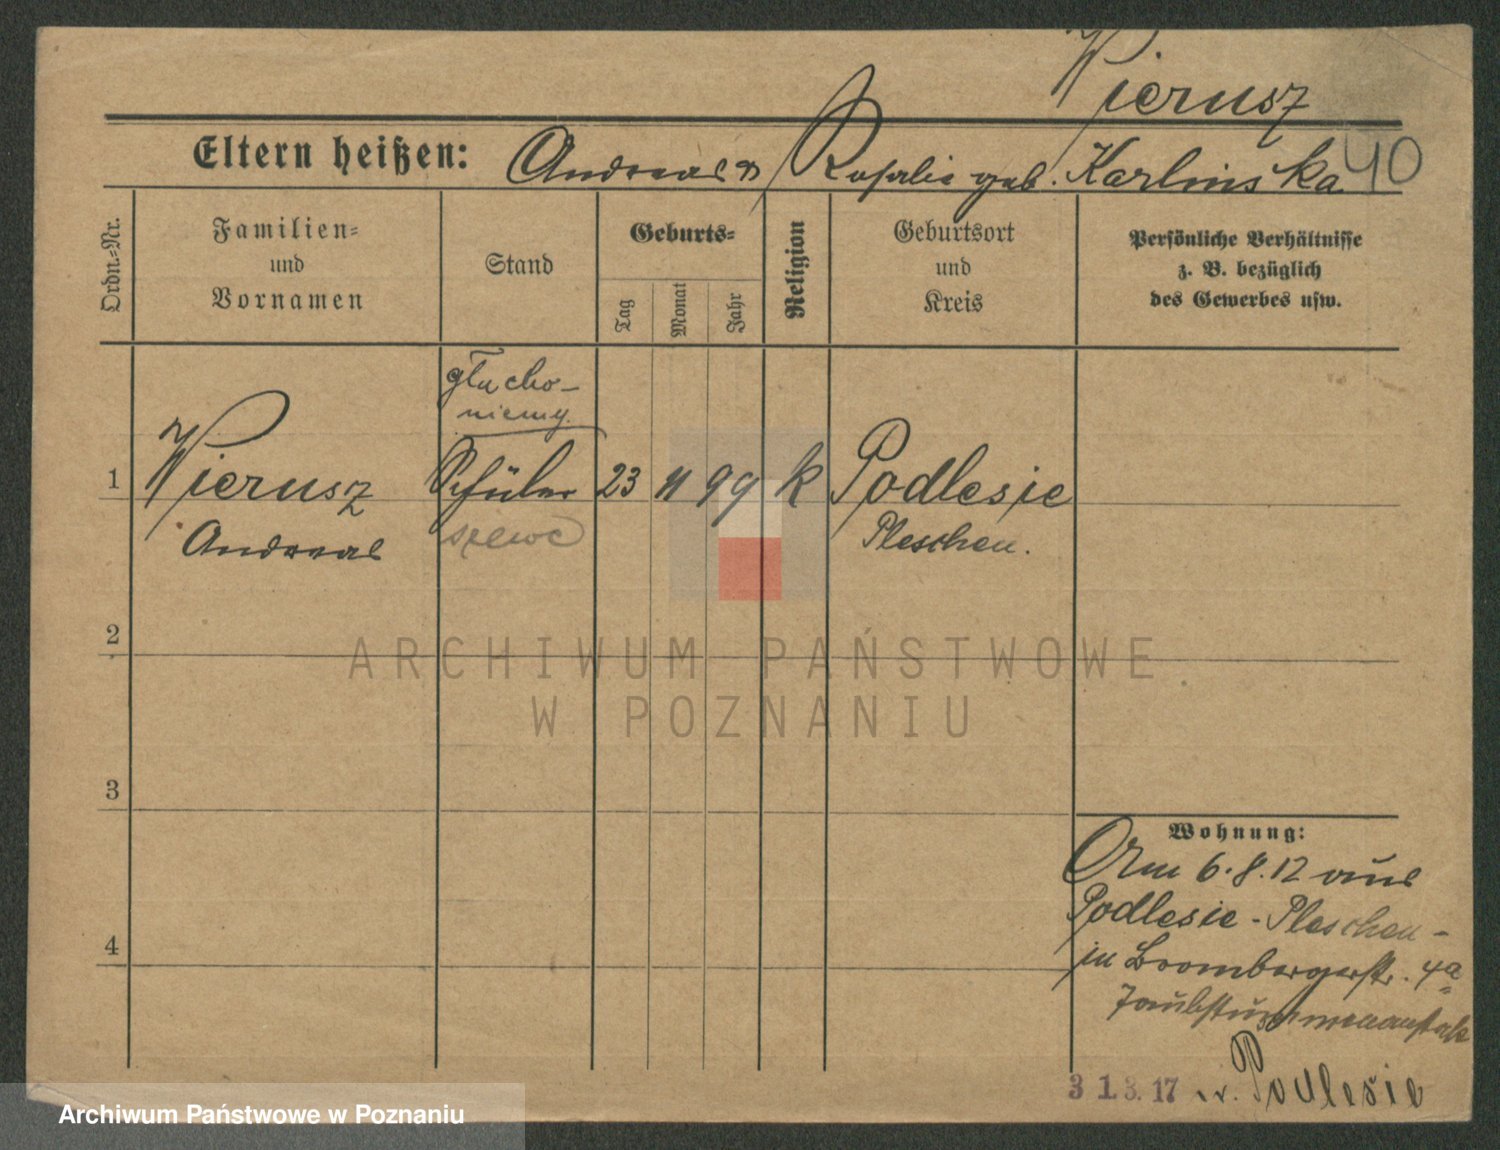 Wierusz
Eltern heißen: Andreas & Rosalie geb. Karlinska 40
Ordn.-Nr.
Familien-
und
Vornamen
Stand
Geburts-
Tag
Monat
Jahr
Religion
Geburtsort
und
Kreis
Persönliche Verhältnisse
z. B. bezüglich
des Gewerbes usw.
głucho-
niemy
1 Wierusz Schüler 23 11 99 k Podlesie
Andreas szewc Pleschen.
2
ARCHIWUM PAŃSTWOWE
W POZNANIU
3
Wohnung:
Am 6.8.12 aus
Podlesie - Pleschen -
in Brombergerstr. 4a
4
Taubstummenanstalt
31.3.17 n. Podlesie
Archiwum Państwowe w Poznaniu